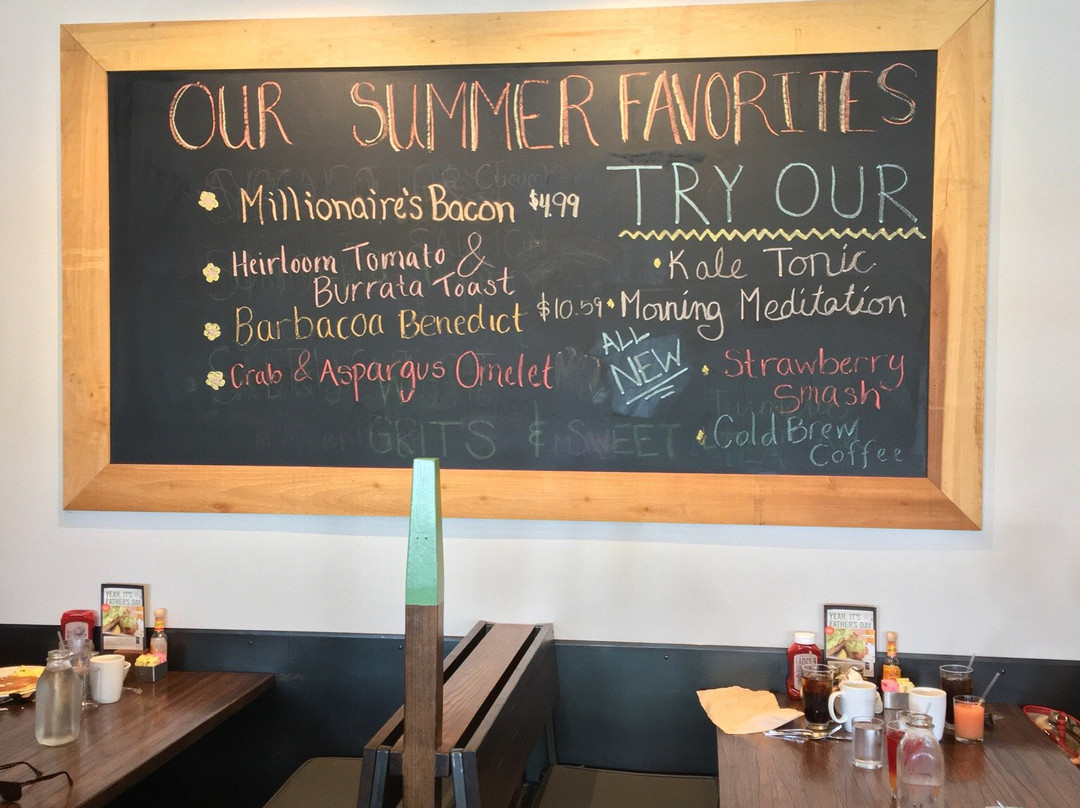 OUR SUMMER FAVORITES
Millionaire's Bacon $4.99
Heirloom Tomato &
Burrata Toast
Barbacoa Benedict $10.59
Crab & Aspargus Omelet
GRITS & SWEET
TRY OUR
Kale Tonic
Morning Meditation
ALL
NEW
Strawberry
Smash
Cold Brew
Coffee
YEAH, IT'S
FATHER'S DAY
YEAH, IT'S
FATHER'S DAY